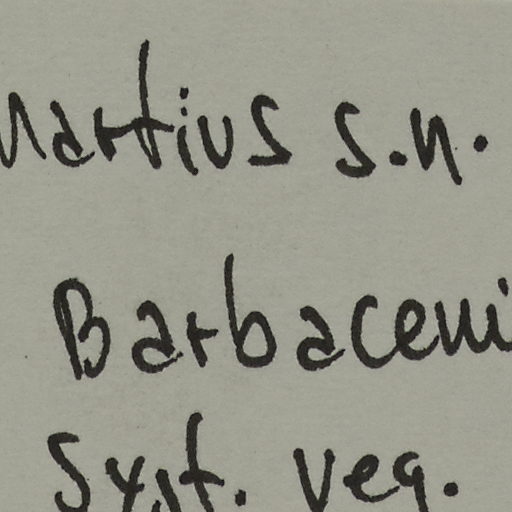 Martius s.n.
Barbaceni
Syst. veg.